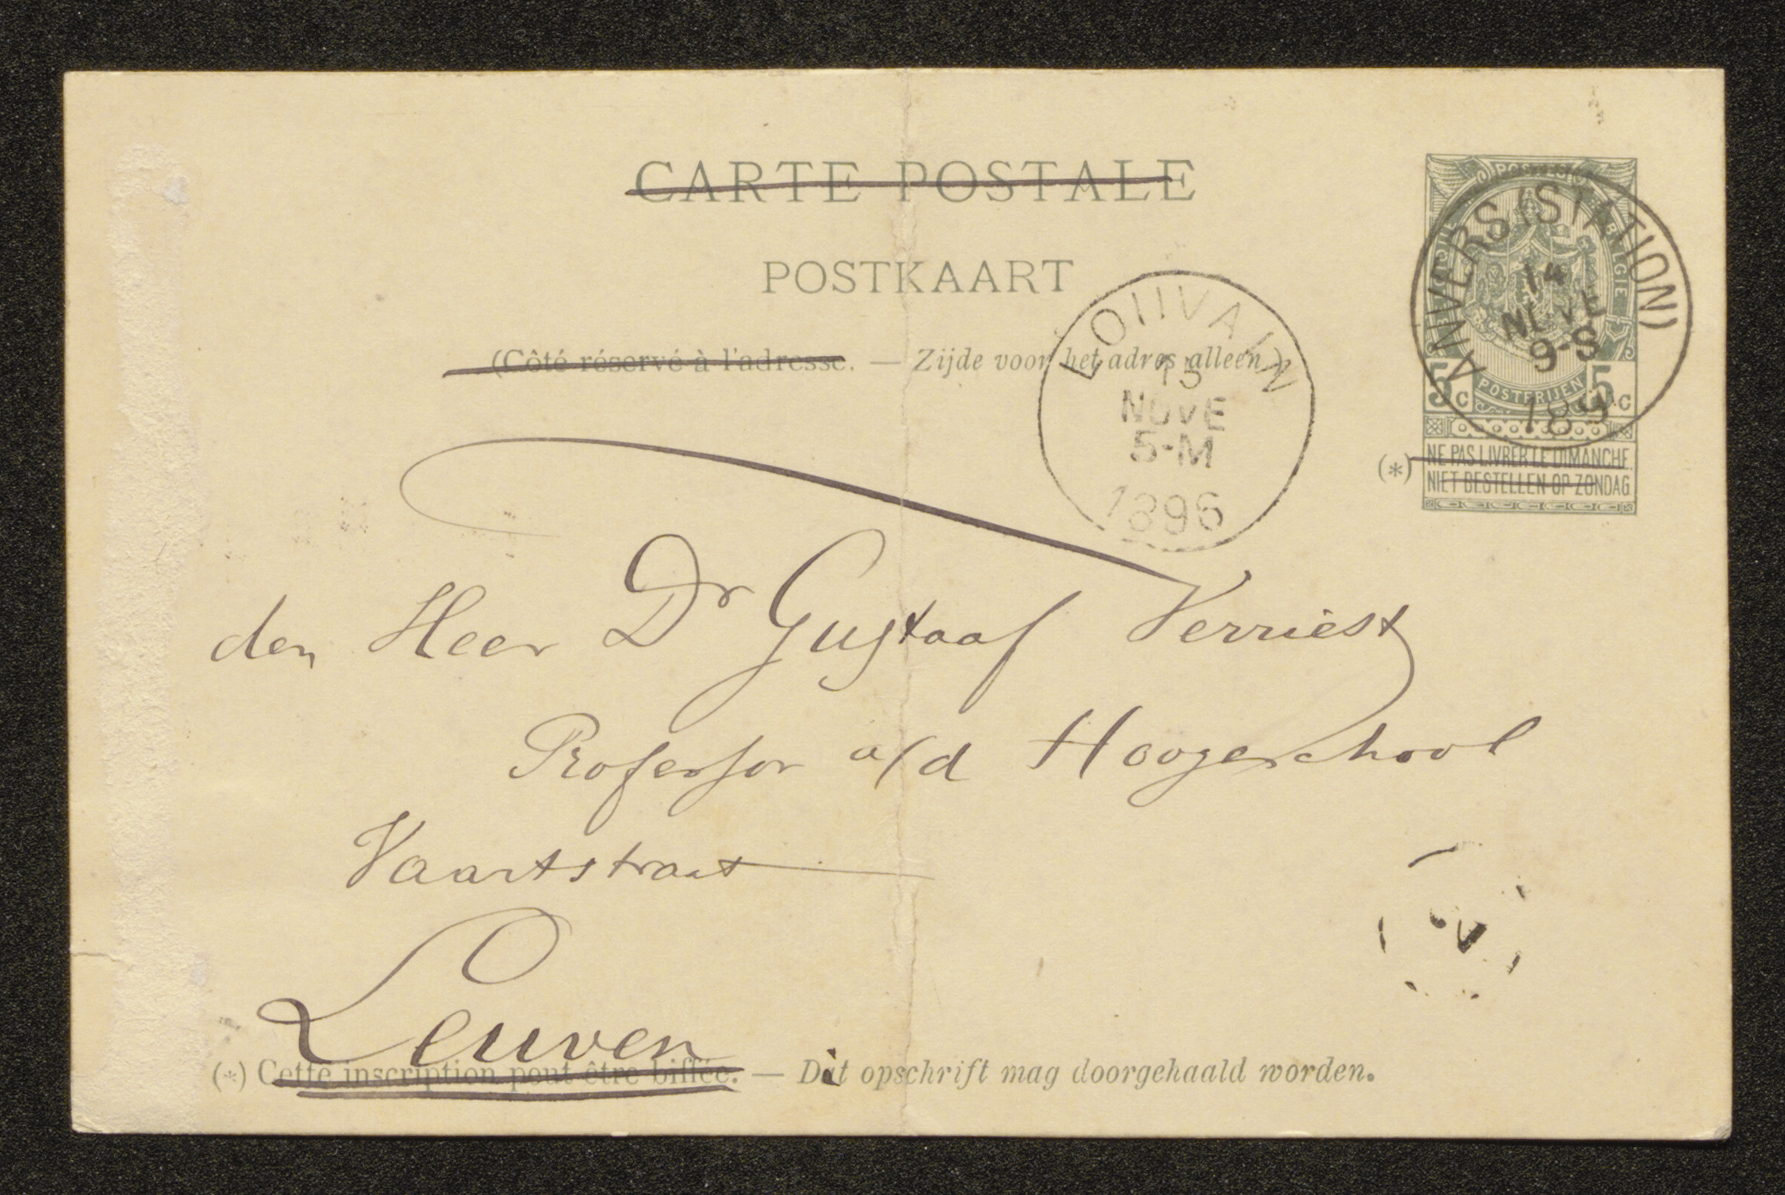 CARTE POSTALE
POSTKAART
(Côté réservé à l'adresse. — Zijde voor het adres alleen.)
POSTES
BELGIQUE
POSTERIJEN
5c 5c
(*) NE PAS LIVRER LE DIMANCHE.
NIET BESTELLEN OP ZONDAG
ANVERS (STATION)
14
NOVE
9-S
189
LOUVAIN
15
NOVE
5-M
1896
den Heer Dr Gustaaf Verriest
Professor a/d Hoogeschool
Vaartstraat
Leuven
(*) Cette inscription peut être biffée. — Dit opschrift mag doorgehaald worden.